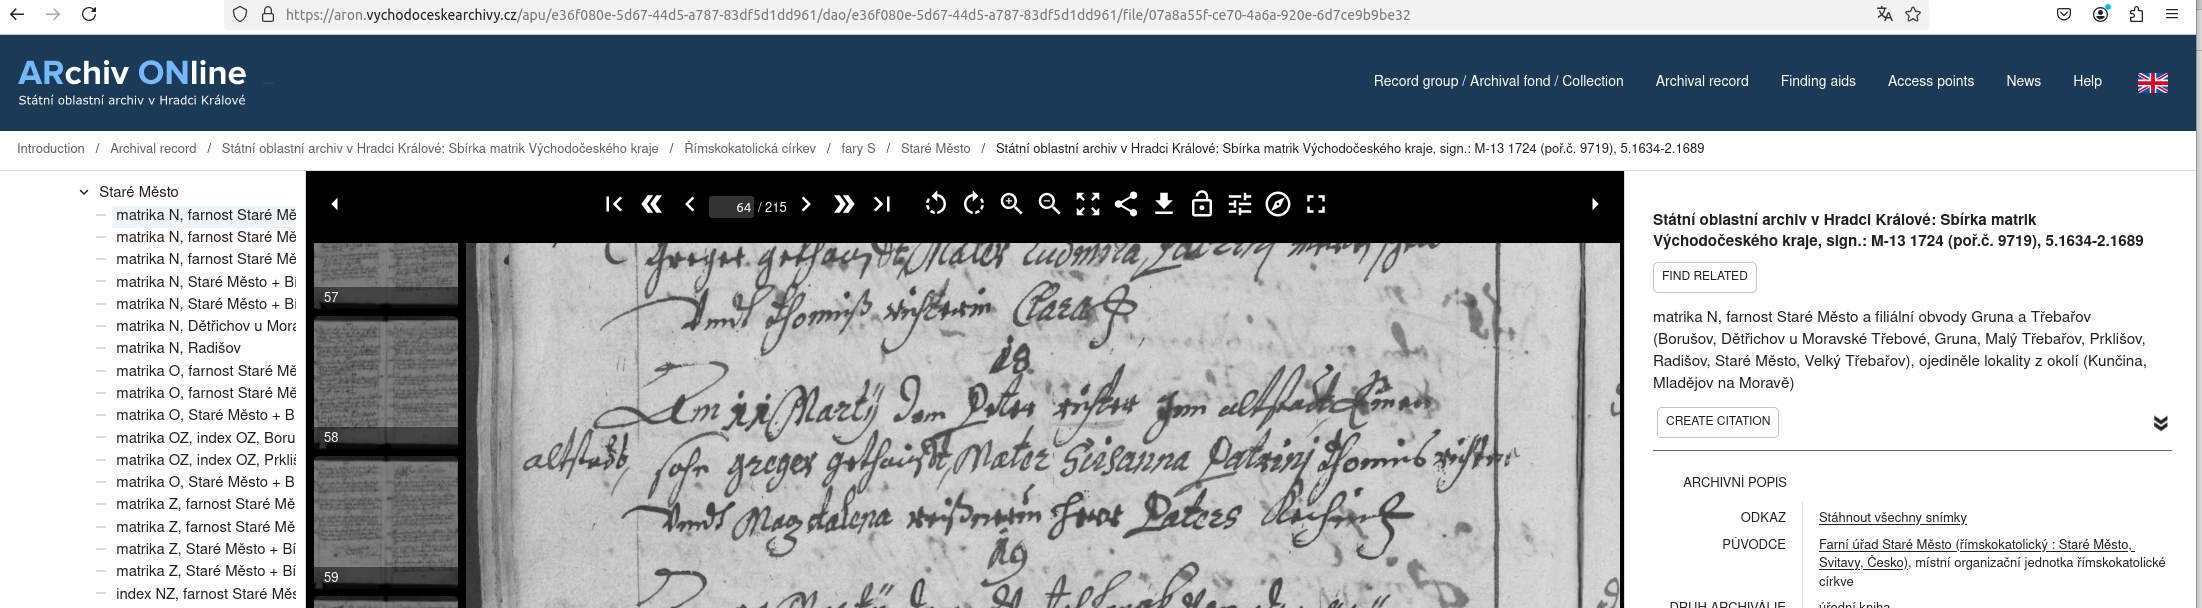 https://aron.vychodoceskearchivy.cz/apu/e36f080e-5d67-44d5-a787-83df5d1dd961/dao/e36f080e-5d67-44d5-a787-83df5d1dd961/file/07a8a55f-ce70-4a6a-920e-6d7ce9b9be32
ARchiv ONline
Státní oblastní archiv v Hradci Králové
Record group / Archival fond / Collection
Archival record
Finding aids
Access points
News
Help
Introduction / Archival record / Státní oblastní archiv v Hradci Králové: Sbírka matrik Východočeského kraje / Římskokatolická církev / fary S / Staré Město / Státní oblastní archiv v Hradci Králové: Sbírka matrik Východočeského kraje, sign.: M-13 1724 (poř.č. 9719), 5.1634-2.1689
Staré Město
matrika N, farnost Staré Mě
matrika N, farnost Staré Mě
matrika N, farnost Staré Mě
matrika N, Staré Město + Bí
matrika N, Staré Město + Bí
matrika N, Dětřichov u Mora
matrika N, Radišov
matrika O, farnost Staré Mě
matrika O, farnost Staré Mě
matrika O, Staré Město + B
matrika OZ, index OZ, Boru
matrika OZ, index OZ, Prkliš
matrika O, Staré Město + B
matrika Z, farnost Staré Mě
matrika Z, farnost Staré Mě
matrika Z, Staré Město + Bí
matrika Z, Staré Město + Bí
index NZ, farnost Staré Měs
64 / 215
57
58
59
greger Mater Ludmila
Vnndt Thomiß richterin Clara
18
Am 11 Martÿ dem Peter richter
altstadt sohn greger gethaufft Mater Susanna Patrinj Thomas richter
Vnndt Magdalena Paters
19
Státní oblastní archiv v Hradci Králové: Sbírka matrik
Východočeského kraje, sign.: M-13 1724 (poř.č. 9719), 5.1634-2.1689
FIND RELATED
matrika N, farnost Staré Město a filiální obvody Gruna a Třebařov
(Borušov, Dětřichov u Moravské Třebové, Gruna, Malý Třebařov, Prklišov,
Radišov, Staré Město, Velký Třebařov), ojediněle lokality z okolí (Kunčina,
Mladějov na Moravě)
CREATE CITATION
ARCHIVNÍ POPIS
ODKAZ
Stáhnout všechny snímky
PŮVODCE
Farní úřad Staré Město (římskokatolický : Staré Město,
Svitavy, Česko), místní organizační jednotka římskokatolické
církve
DRUH ARCHIVÁLIE
úřední kniha